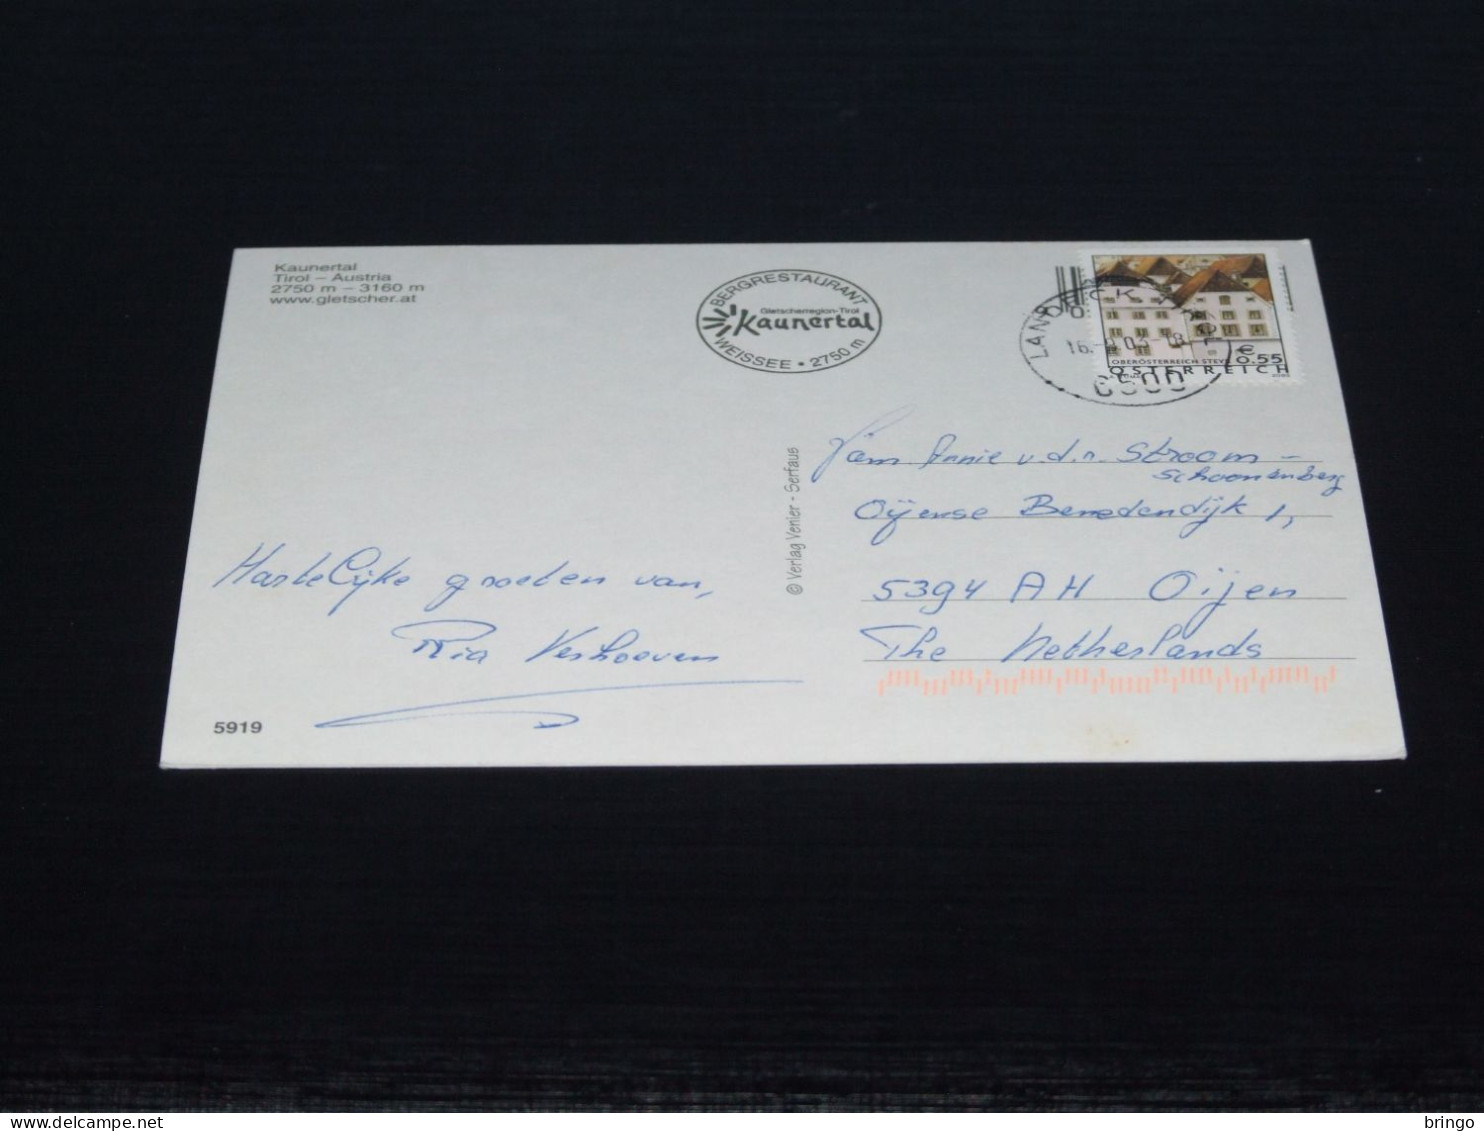 Kaunertal
Tirol – Austria
2750 m – 3160 m
www.gletscher.at
BERGRESTAURANT
Gletscherregion-Tirol
Kaunertal
WEISSEE • 2750 m
LANDECK
6500
€ 0.55
OBERÖSTERREICH STEYR
ÖSTERREICH
Hartelijke groeten van,
Ria Verhoeven
5919
© Verlag Venier - Serfaus
Fam Annie v.d.n. Stroom –
Schoonenberg
Oijense Benedendijk 1,
5394 AH Oijen
The Netherlands
delcampe.net
bringo